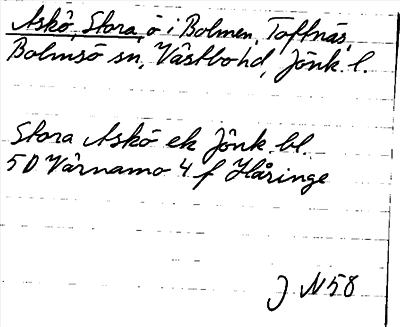 Askö, Stora, ö i Bolmen, Toftnäs,
Bolmsö sn, Västbo hd, Jönk. l.
Stora Askö ek Jönk. bl.
5D Värnamo 4 f Håringe
J N 58